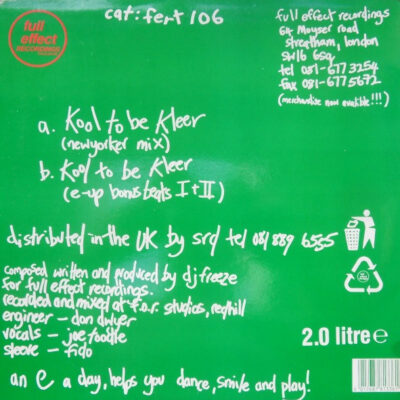 full
effect
RECORDINGS
cat: fert 106
full effect recordings
64 Moyser road
streatham, london
sw16 6sq
tel 081-677 3254
fax 081-677 5672
(merchandise now availible!!!)
a. Kool to be Kleer
(newyorker mix)
b. Kool to be Kleer
(e-up bonus beats I + II)
distributed in the UK by srd tel 081 889 6555
composed written and produced by dj freeze
for full effect recordings.
recorded and mixed at f.o.r. studios, redhill
engineer – don dwyer
vocals – joe foodle
sleeve – fido
2.0 litre e
an e a day, helps you dance, smile and play!